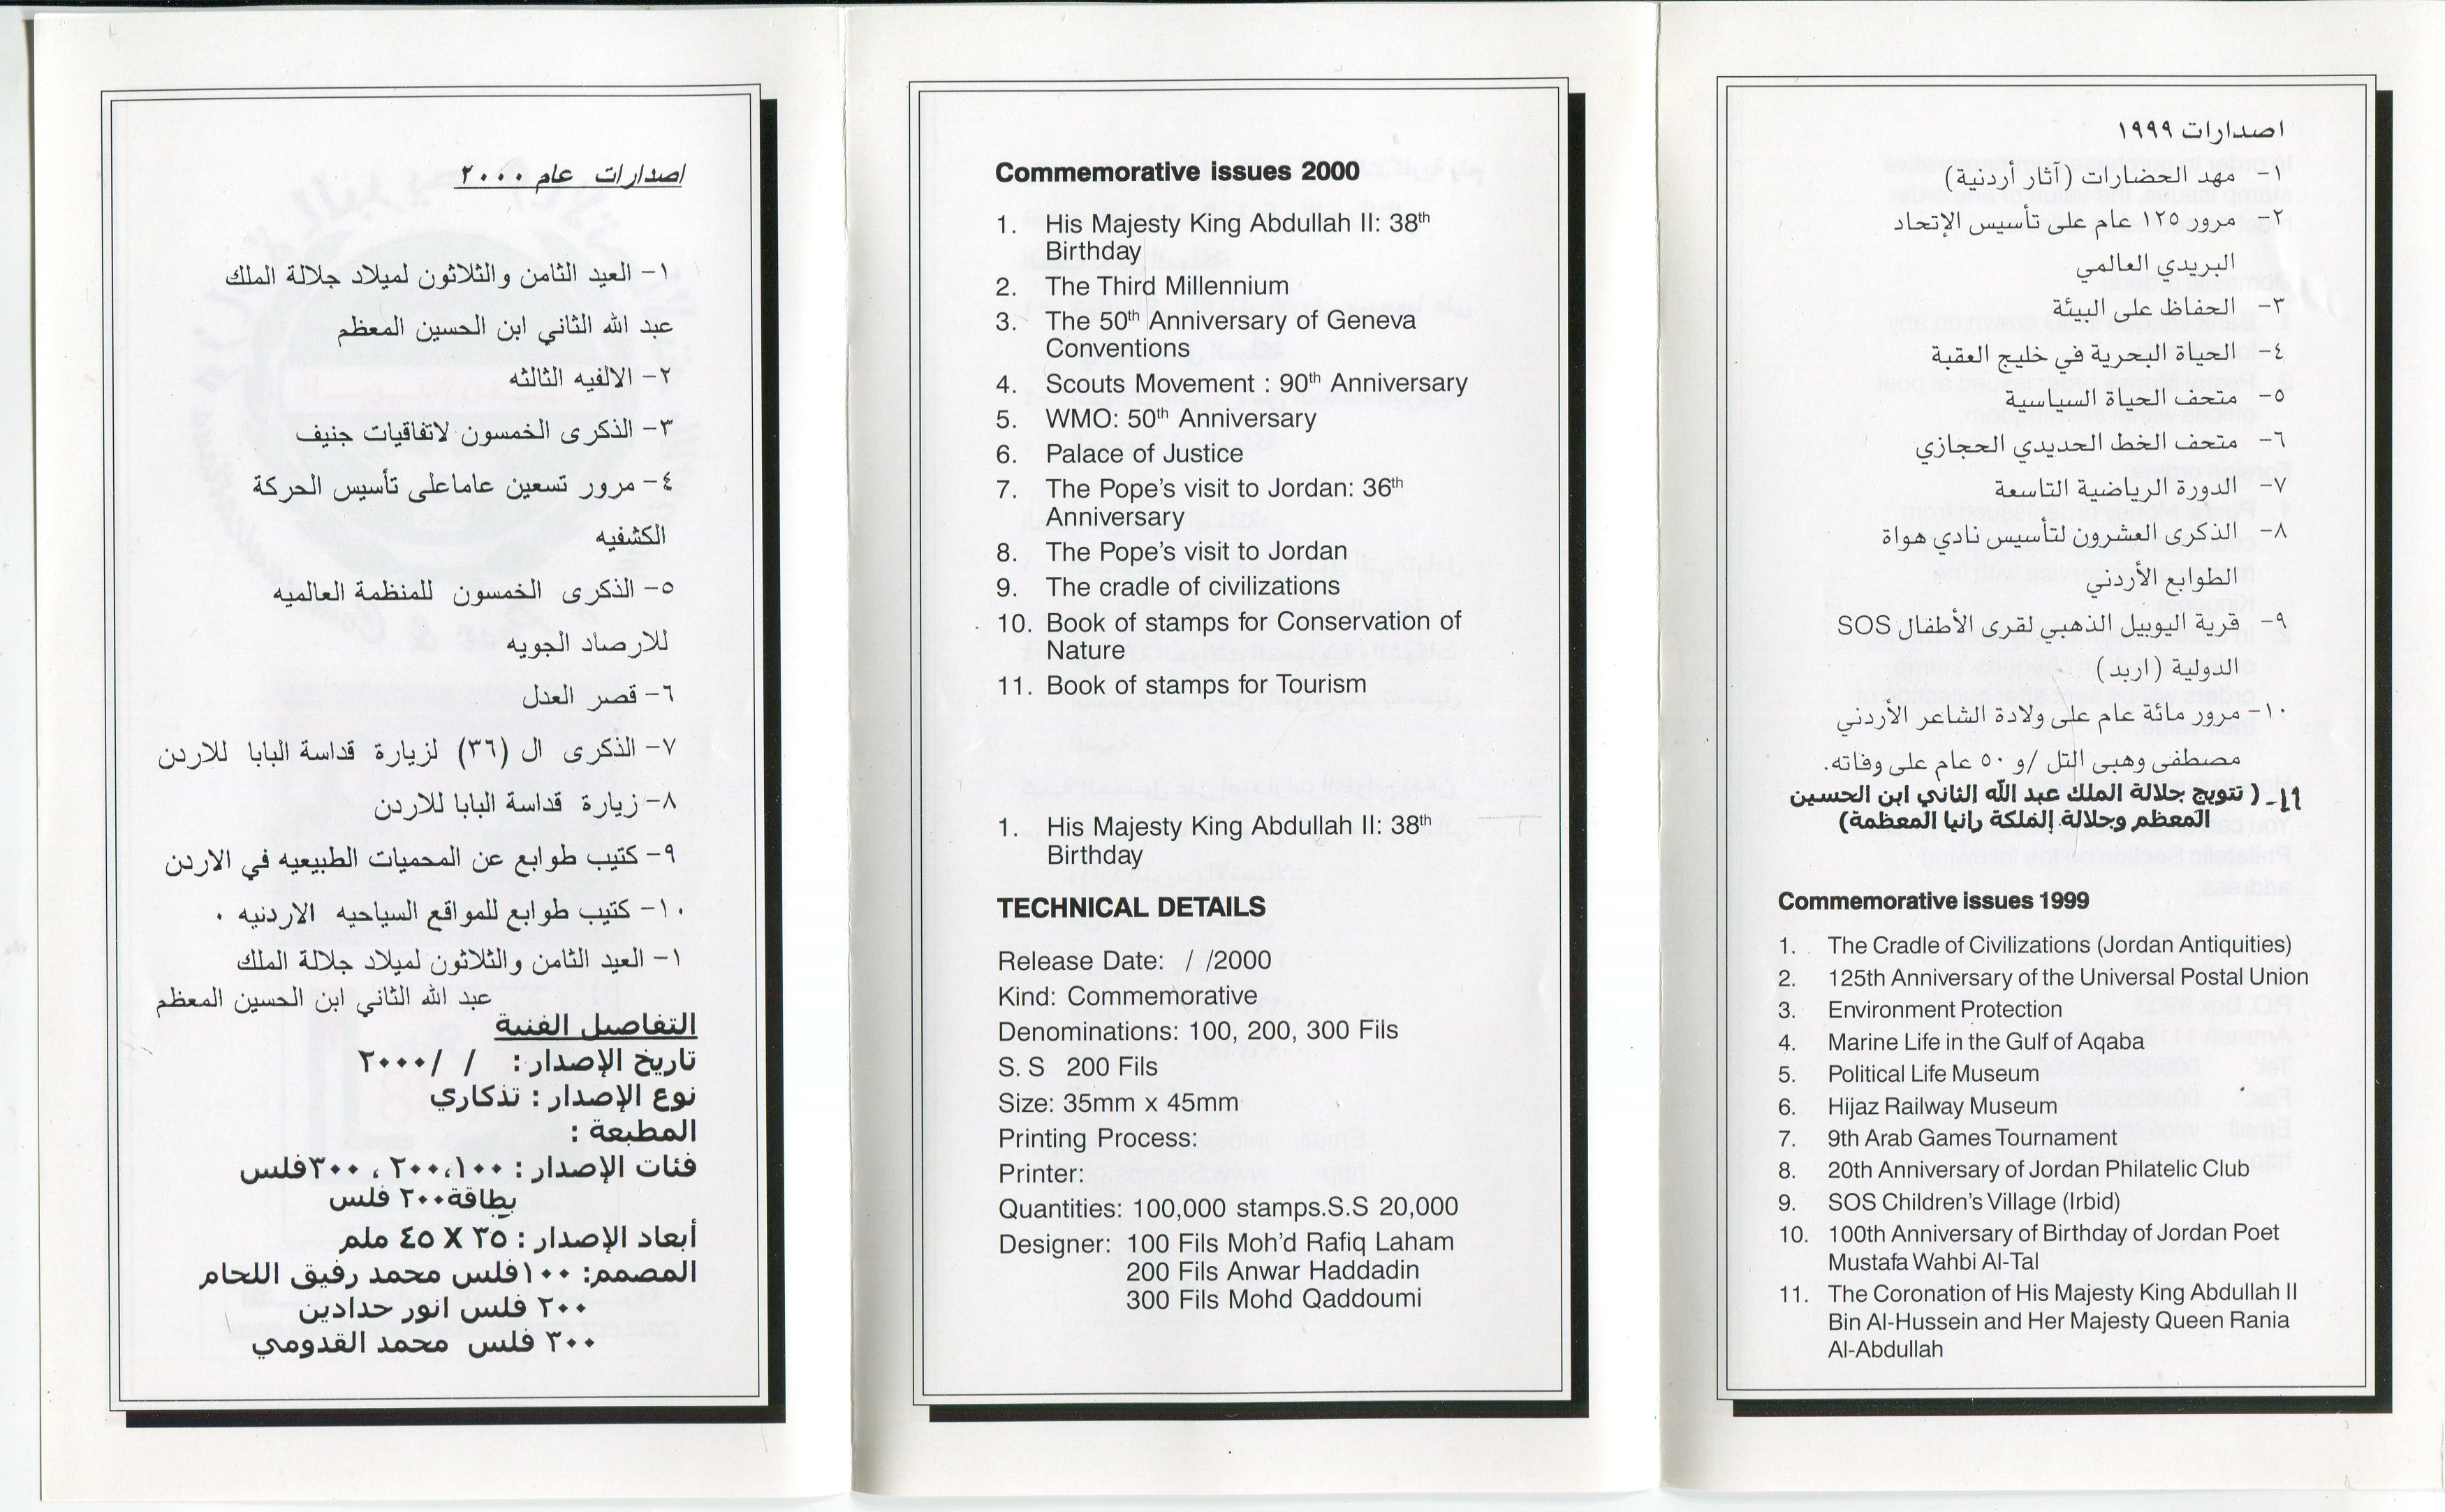 اصدارات عام ٢٠٠٠
١- العيد الثامن والثلاثون لميلاد جلالة الملك
عبد الله الثاني ابن الحسين المعظم
٢- الالفيه الثالثه
٣- الذكرى الخمسون لاتفاقيات جنيف
٤- مرور تسعين عاماعلى تأسيس الحركة
الكشفيه
٥- الذكرى الخمسون للمنظمة العالميه
للارصاد الجويه
٦- قصر العدل
٧- الذكرى ال (٣٦) لزيارة قداسة البابا للاردن
٨- زيارة قداسة البابا للاردن
٩- كتيب طوابع عن المحميات الطبيعيه في الاردن
١٠- كتيب طوابع للمواقع السياحيه الاردنيه .
١- العيد الثامن والثلاثون لميلاد جلالة الملك
عبد الله الثاني ابن الحسين المعظم
التفاصيل الفنية
تاريخ الإصدار : / /٢٠٠٠
نوع الإصدار : تذكاري
المطبعة :
فئات الإصدار : ١٠٠،٢٠٠ ، ٣٠٠فلس
بطاقة٢٠٠ فلس
أبعاد الإصدار : ٣٥ X ٤٥ ملم
المصمم: ١٠٠فلس محمد رفيق اللحام
٢٠٠ فلس انور حدادين
٣٠٠ فلس محمد القدومي
Commemorative issues 2000
1. His Majesty King Abdullah II: 38th
Birthday
2. The Third Millennium
3. The 50th Anniversary of Geneva
Conventions
4. Scouts Movement : 90th Anniversary
5. WMO: 50th Anniversary
6. Palace of Justice
7. The Pope's visit to Jordan: 36th
Anniversary
8. The Pope's visit to Jordan
9. The cradle of civilizations
10. Book of stamps for Conservation of
Nature
11. Book of stamps for Tourism
1. His Majesty King Abdullah II: 38th
Birthday
TECHNICAL DETAILS
Release Date: / /2000
Kind: Commemorative
Denominations: 100, 200, 300 Fils
S. S 200 Fils
Size: 35mm x 45mm
Printing Process:
Printer:
Quantities: 100,000 stamps.S.S 20,000
Designer: 100 Fils Moh'd Rafiq Laham
200 Fils Anwar Haddadin
300 Fils Mohd Qaddoumi
اصدارات ١٩٩٩
١- مهد الحضارات (آثار أردنية)
٢- مرور ١٢٥ عام على تأسيس الإتحاد
البريدي العالمي
٣- الحفاظ على البيئة
٤- الحياة البحرية في خليج العقبة
٥- متحف الحياة السياسية
٦- متحف الخط الحديدي الحجازي
٧- الدورة الرياضية التاسعة
٨- الذكرى العشرون لتأسيس نادي هواة
الطوابع الأردني
٩- قرية اليوبيل الذهبي لقرى الأطفال SOS
الدولية (اربد)
١٠- مرور مائة عام على ولادة الشاعر الأردني
مصطفى وهبى التل /و ٥٠ عام على وفاته.
١١- ( تتويج جلالة الملك عبد الله الثاني ابن الحسين
المعظم وجلالة الملكة رانيا المعظمة)
Commemorative issues 1999
1. The Cradle of Civilizations (Jordan Antiquities)
2. 125th Anniversary of the Universal Postal Union
3. Environment Protection
4. Marine Life in the Gulf of Aqaba
5. Political Life Museum
6. Hijaz Railway Museum
7. 9th Arab Games Tournament
8. 20th Anniversary of Jordan Philatelic Club
9. SOS Children's Village (Irbid)
10. 100th Anniversary of Birthday of Jordan Poet
Mustafa Wahbi Al-Tal
11. The Coronation of His Majesty King Abdullah II
Bin Al-Hussein and Her Majesty Queen Rania
Al-Abdullah